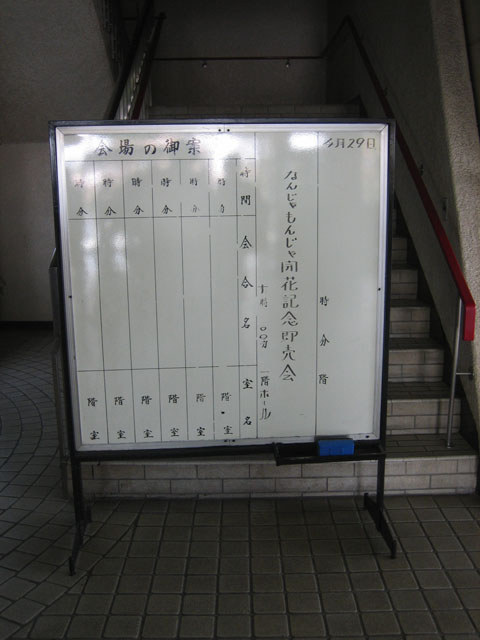 月29日
時 分 階
なんじゃもんじゃ開花記念即売会
一階ホール
会場の御案
時間 会合名 室名
時 分 階 室
時 分 階 室
時 分 階 室
時 分 階 室
時 分 階 室
時 分 階 室